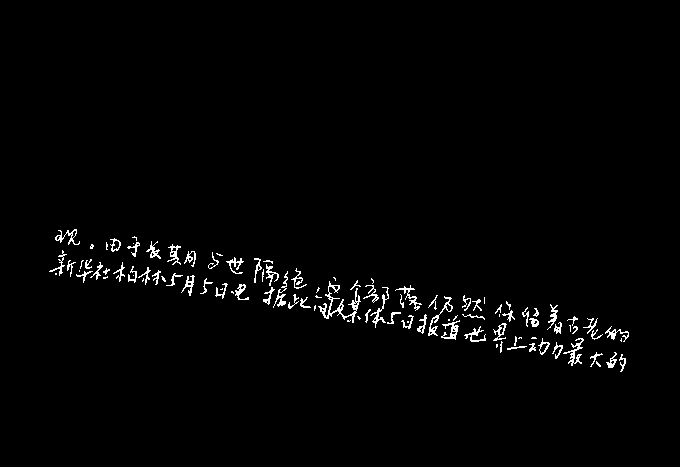 现。由于长期与世隔绝，这个部落仍然保留着古老的
新华社柏林5月5日电 据此间媒体5日报道世界上动力最大的